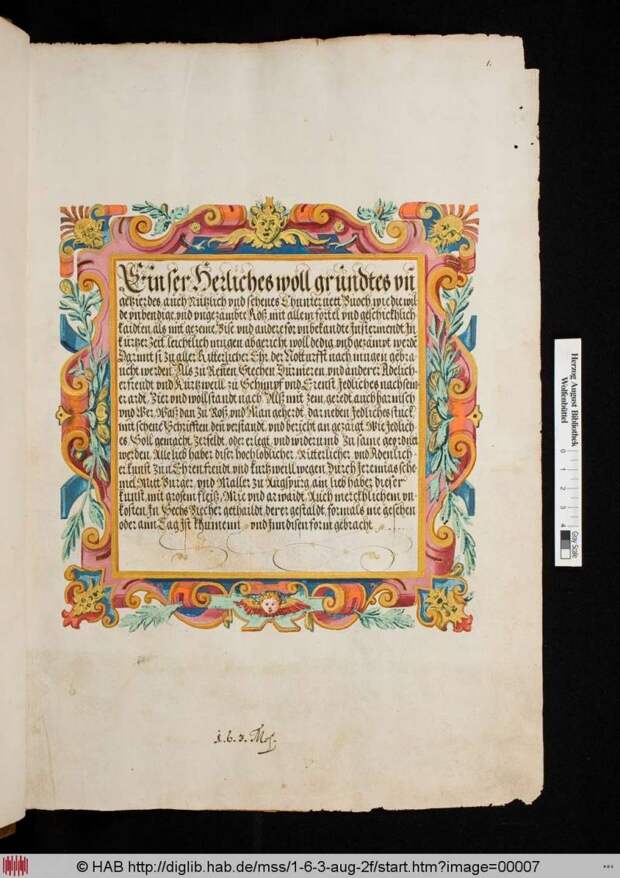 1.
Ein ser Herliches woll gründtes vn
getzierdes, auch Nützlich vnd schenes Thurnier Buoch wie die wil
de vnbendige vnd vngezambte Roß mit allem fortel vnd geschicklich
kaidten als mit gezeme, Bise vnd andere for vnbekandte Instermendt In
kürtzer Zeit leichtlich mügen abgericht woll ledig vnd gezampt werde
Darmit si zu aller Ritterlicher Ehr der Notturfft nach mügen gebra
ucht werden Als zu Renen Stechen Durnieren vnd anderer Adelich
er freudt vnd Kurtzweill zu Schimpf vnd Ernst Jedliches nach sein
er ardt
vnd Wer Waß dan zu Roß vnd Man geherdt dar neben Jedliches stuck
mit schene Schrifften den verstandt vnd bericht an gezaigt Wie Jedlich
es Soll gemacht Zerfeldt oder erlegt vnd widerumb Zu same geordnet
werden Alle lieb haber diser hochloblicher Ritterlicher vnd Adenlich
er kunst zu Ehren freud vnd kurtzweill wegen Durch Jeremias sche
mel Mitt Burger vnd Maller zu Augspurg ain lieb haber dieser
kunst mit grosem fleiß Mie vnd arwaidt Auch merckhlichem vn
kosten In Sechs Biecher gethaildt derer gestaldt formals nie gesehen
oder ann Tag ist khumenn vnd inn disen form gebracht
1. 6. 3. Msc.
Herzog August Bibliothek
Wolfenbüttel
0 1 2 3 4
Gray Scale
© HAB http://diglib.hab.de/mss/1-6-3-aug-2f/start.htm?image=00007